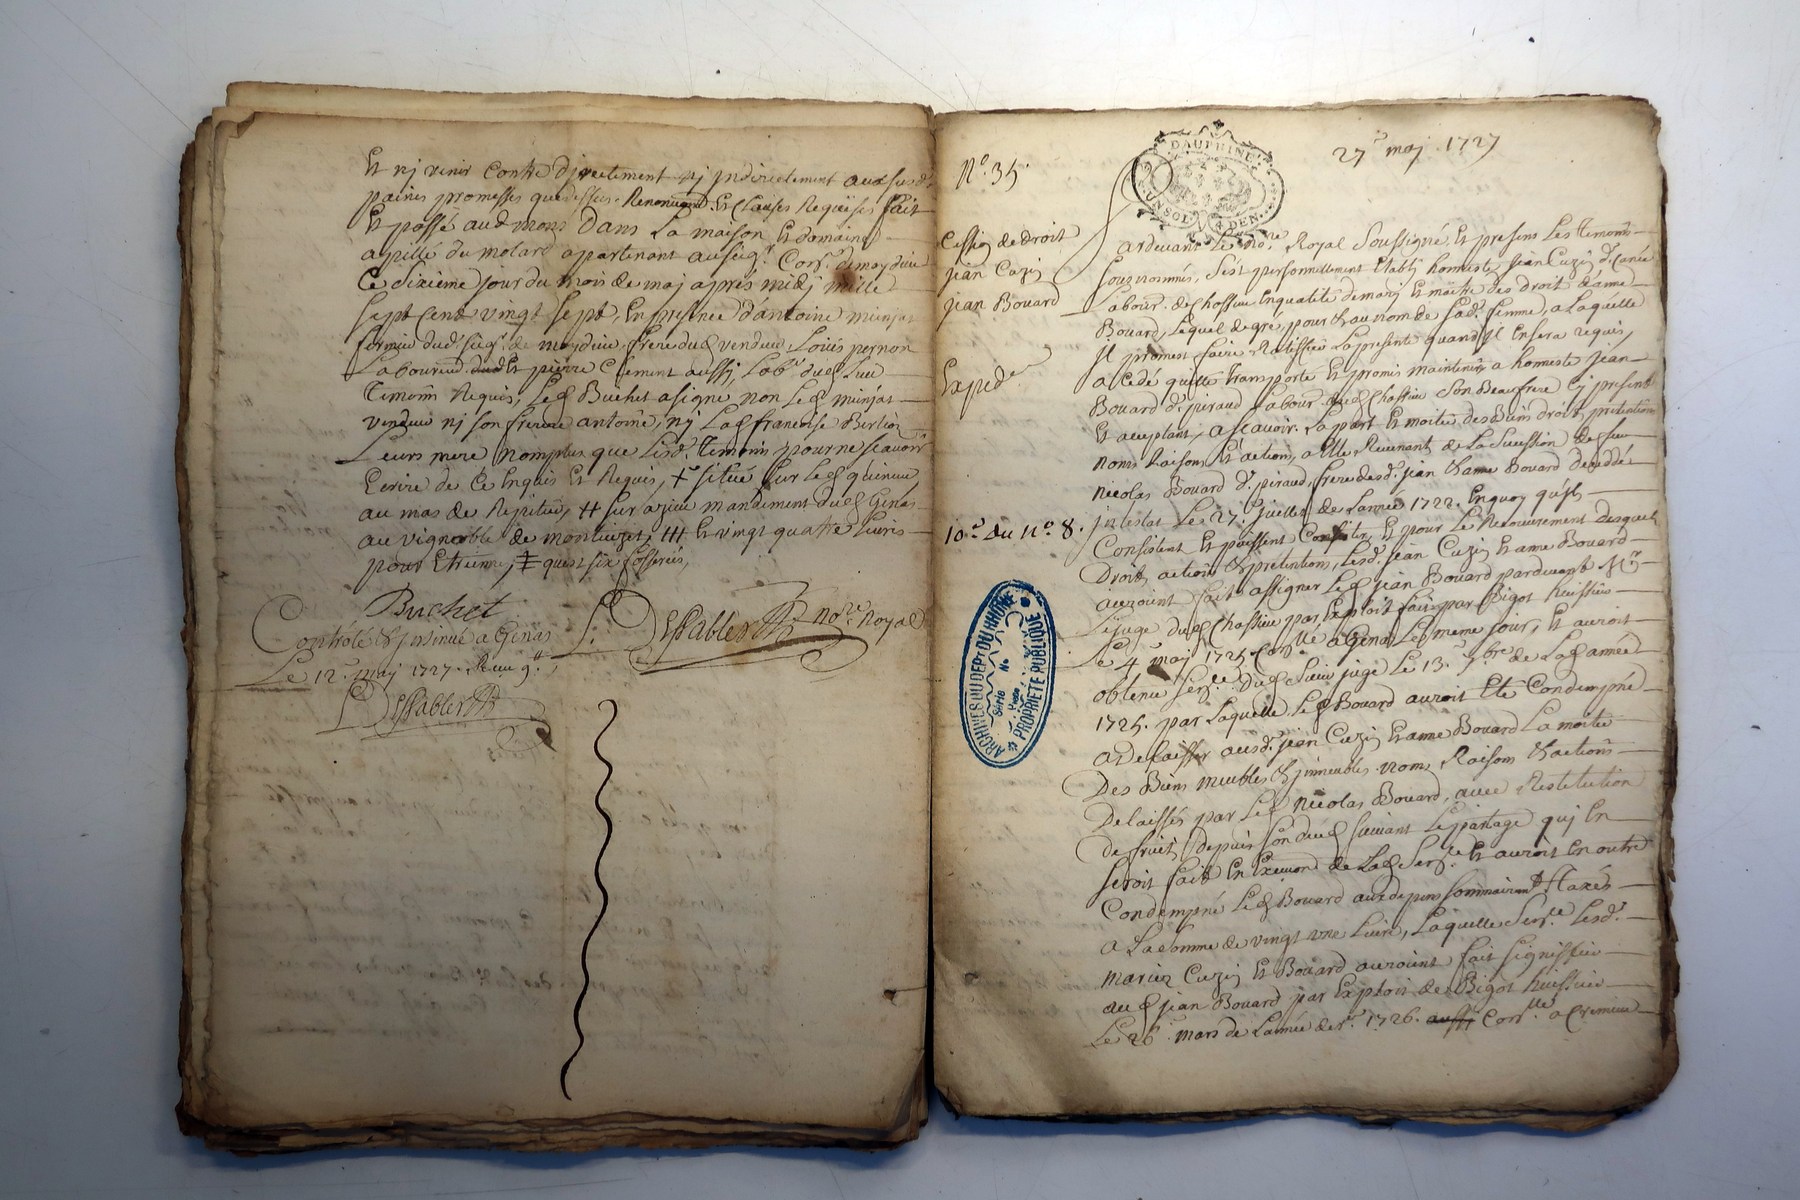 Et nj venir contre directement nj jndirectement aux susd.
paines promesses que dessus. Renonciaõns Et Clauses Requises fait
Et passé aud mons Dans La maison Et domaine
apellé du molard apartenant ausieg.r Cons.r de moydieu
Ce sixieme jour du mois de maj aprés midj mille
sept Cent vingt sept, En presence d'antoine munjat
fermier dud. sieg.r de moydieu frere dud vendeur, Loüis pernon
Laboureur Et pierre Clement aussj Lab.r dud Lieu
Temoins Requis, Led Buchet a signé non Led munjat
vendeur nj son frere antoine, nj Lad francoise Berlioz
Leurs mere nomplus que Lesd. Temoins pour ne scavoir
Ecrire de Ce Enquis Et Requis,
au mas de
au vignoble de Et vingt quatre Livres
pour Etrenne, quest six fosserées,
Buchet
Contrôlé & jnsinué a Genas
Le 12.e maj 1727. Receu
not.re Royal
N.o 35.
DAUPHINÉ
27.e maj 1727
Cession de droit
jean Cuzin
jean Bouard
Exped.
10.e du N.o 8.
ardevant Le no.re Royal Soussigné, Et presens Les Temoins
souznommés, s'est personnellement Etablj honneste Jean Cuzin
Labour. de Chassieu En qualité de marj Et maitre des droit d'anne
Bouard, Lequel de gré, pour & au nom de sad. femme, a Laquelle
jl promest faire Ratiffier La presente quand jl En sera requis,
a Cedé quitté transporté Et promis maintenir a honneste jean
Bouard d. piraud Labour. dud Chassieu Son Beaufrere Cj present
Et aceptant, a scavoir. La part Et moitié des Biens droits pretentions
noms Raisons Et actions, a Elle Revenant de La Suession de feu
nicolas Bouard d. piraud, frere desd. jean & anne Bouard decedé
jntestat Le 27.e Juillet de Lannée 1722. En quoy qu'ils
Consistent Et puissent Consister, Et pour Le Recouvrement desquels
Droits, actions & pretentions, Lesd. jean Cuzin Et anne Bouard
auroint fait assigner Led jean Bouard pardevant
Le juge dud Chassieu par Exploit fait par Bigot huissier
Le 4.e maj 1725 Con.llé a Genas Le meme jour, Et auroit
obtenu sen.ce dud sieur juge Le 13.e de Lad année
1725. par Laquelle Led Bouard auroit Eté Condempné
a Delaisser ausd. jean Cuzin Et anne Bouard La moitié
Des Biens meubles & jmmeubles noms Raisons & actions
Delaissés par Led nicolas Bouard, avec Restitution
de fruits, depuis son deces suivant Le partage quj En
seroit fait En Execution de Lad Sen.ce Et auroit En outre
Condempné Led Bouard aux depens sommairem.t taxés
a La somme de vingt une Livre, Laquelle Sen.ce Lesd.
mariez Cuzin Et Bouard auroint fait signiffier
aud jean Bouard par Exploit de Bigot huissier
Le 26.e mars de Lannée der.re 1726. aussj Con.llé a Cremieu
ARCHIVES DU DEPT DU RHÔNE
Série No
PROPRIÉTÉ PUBLIQUE